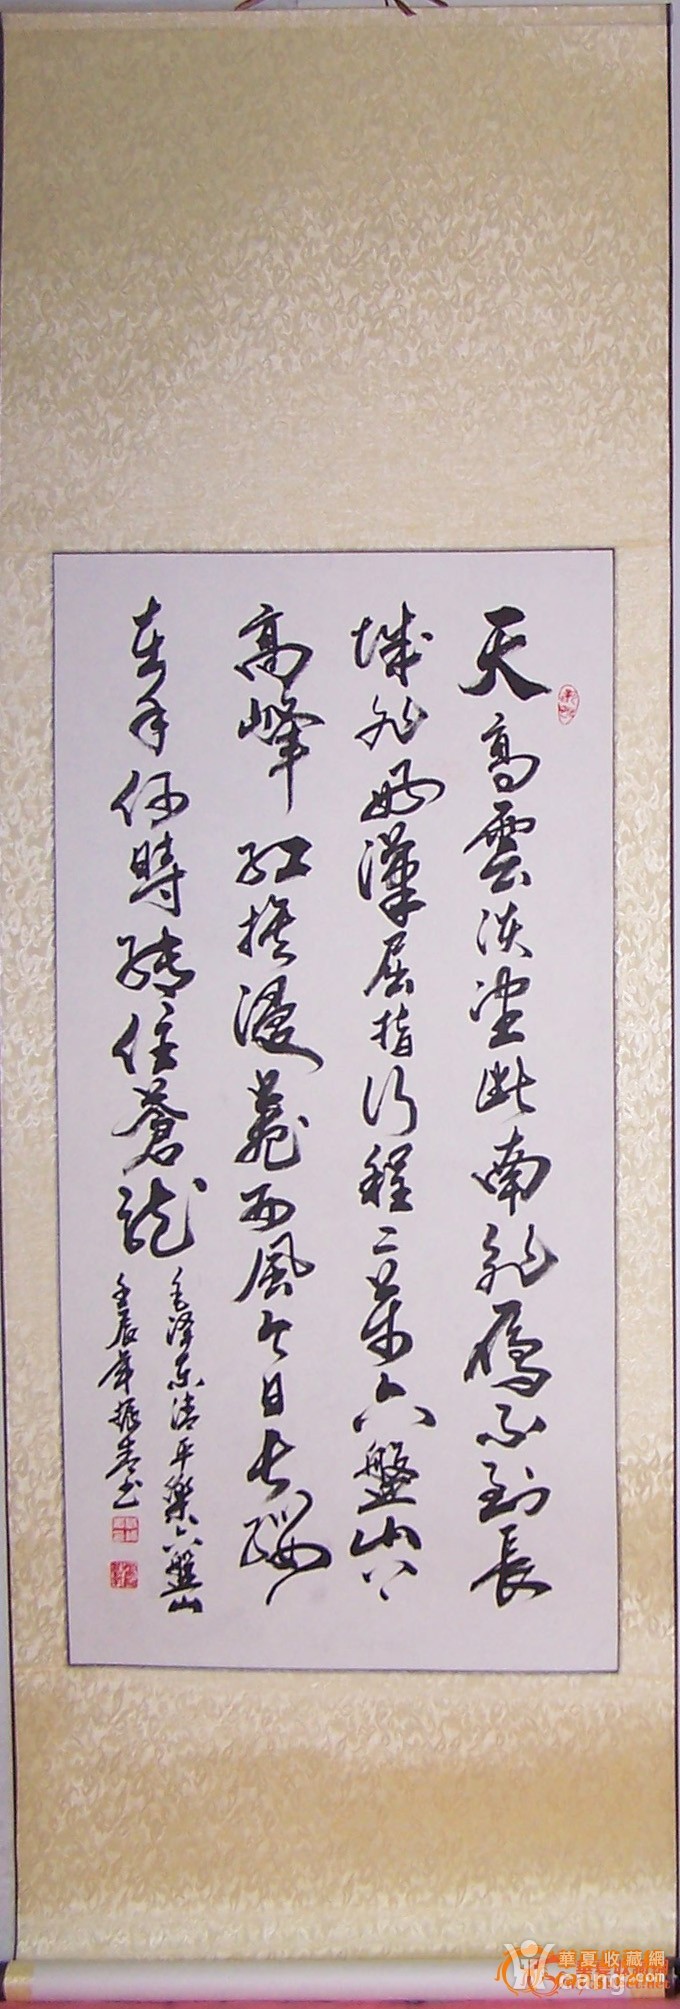 天高雲淡望断南飛雁不到長
城非好漢屈指行程二萬六盤山上
高峰紅旗漫卷西風今日长纓
在手何時縛住蒼龍
毛泽东清平樂六盤山
壬辰年振书
華夏收藏網